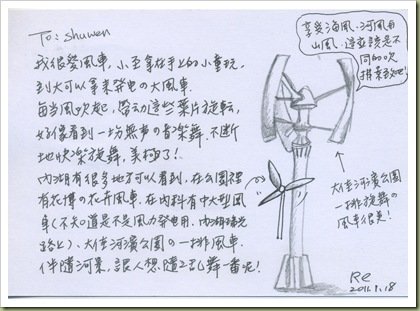 To: shuwen
我很愛風車，小至拿在手上的小童玩，
到大可以拿來発电の大風車．
每當風吹起，帶动這些葉片旋転，
好像看到一場無声の音楽舞，不断
地快楽旋舞，美極了！
內湖有很多地方可以看到，在公園裡
有花博の花卉風車，在內科有中大型風
車(不知道是不是風力発电用，內湖瑞光
路上)、大佳河濱公園の一排風車．
伴隨河景，讓人想隨之乱舞一番呢！
享受海風、河風和
山風，這應該是不
同的吹
拂享受吧！
大佳河濱公園
一排旋舞の
風車很美！
Re
2011.1.18